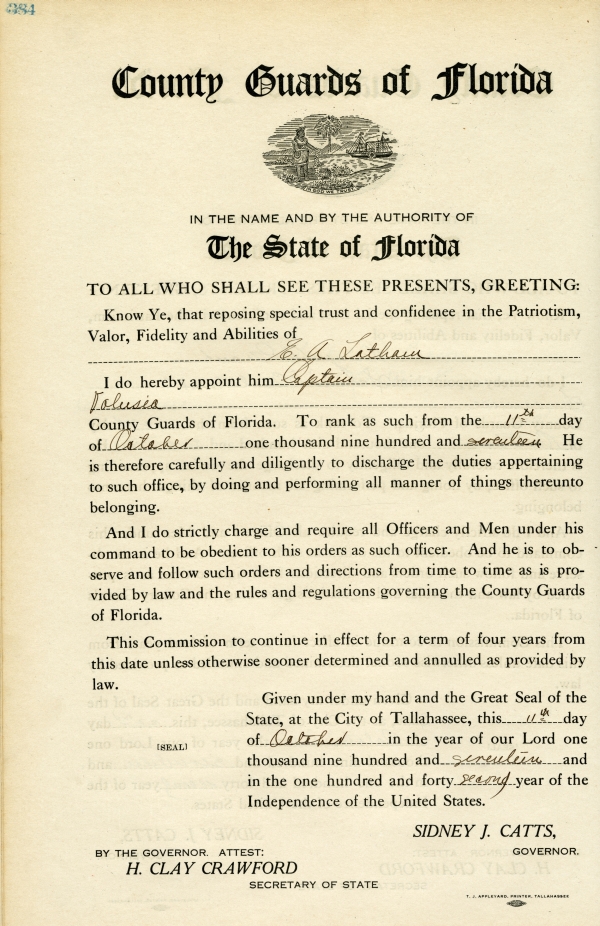 384
County Guards of Florida
IN GOD WE TRUST
IN THE NAME AND BY THE AUTHORITY OF
The State of Florida
TO ALL WHO SHALL SEE THESE PRESENTS, GREETING:
Know Ye, that reposing special trust and confidenee in the Patriotism,
Valor, Fidelity and Abilities of
E. A Latham
I do hereby appoint him Captain
Volusia
County Guards of Florida. To rank as such from the 11th day
of October one thousand nine hundred and seventeen He
is therefore carefully and diligently to discharge the duties appertaining
to such office, by doing and performing all manner of things thereunto
belonging.
And I do strictly charge and require all Officers and Men under his
command to be obedient to his orders as such officer. And he is to ob-
serve and follow such orders and directions from time to time as is pro-
vided by law and the rules and regulations governing the County Guards
of Florida.
This Commission to continue in effect for a term of four years from
this date unless otherwise sooner determined and annulled as provided by
law.
Given under my hand and the Great Seal of the
State, at the City of Tallahassee, this 11th day
[SEAL] of October in the year of our Lord one
thousand nine hundred and seventeen and
in the one hundred and forty second year of the
Independence of the United States.
SIDNEY J. CATTS,
GOVERNOR.
BY THE GOVERNOR. ATTEST:
H. CLAY CRAWFORD
SECRETARY OF STATE
T. J. APPLEYARD, PRINTER, TALLAHASSEE